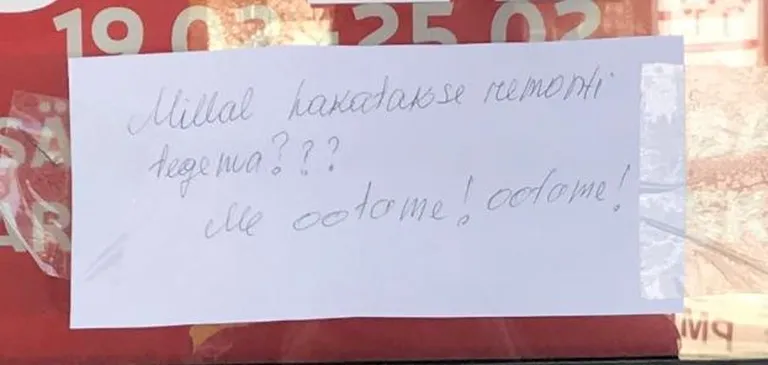 19.02 - 25.02
Millal hakatakse remonti
tegema???
Me ootame! ootame!
SÄ
AR
PM